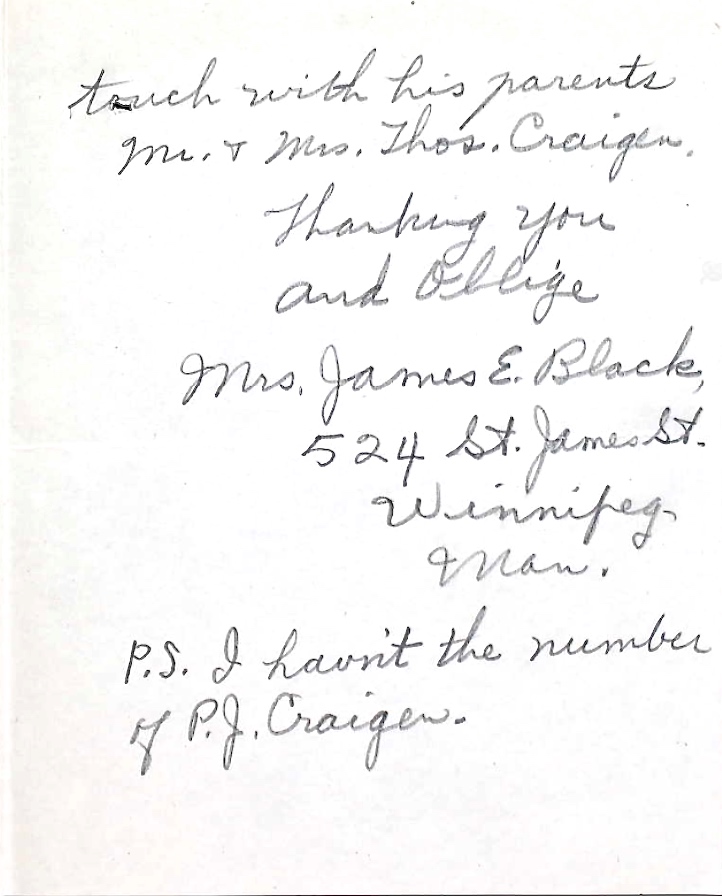 touch with his parents
Mr. & Mrs. Thos. Craigen.
Thanking You
and Oblige
Mrs. James E. Black,
524 St. James St.
Winnipeg
Man.
P.S. I havn't the number
of P.J. Craigen.